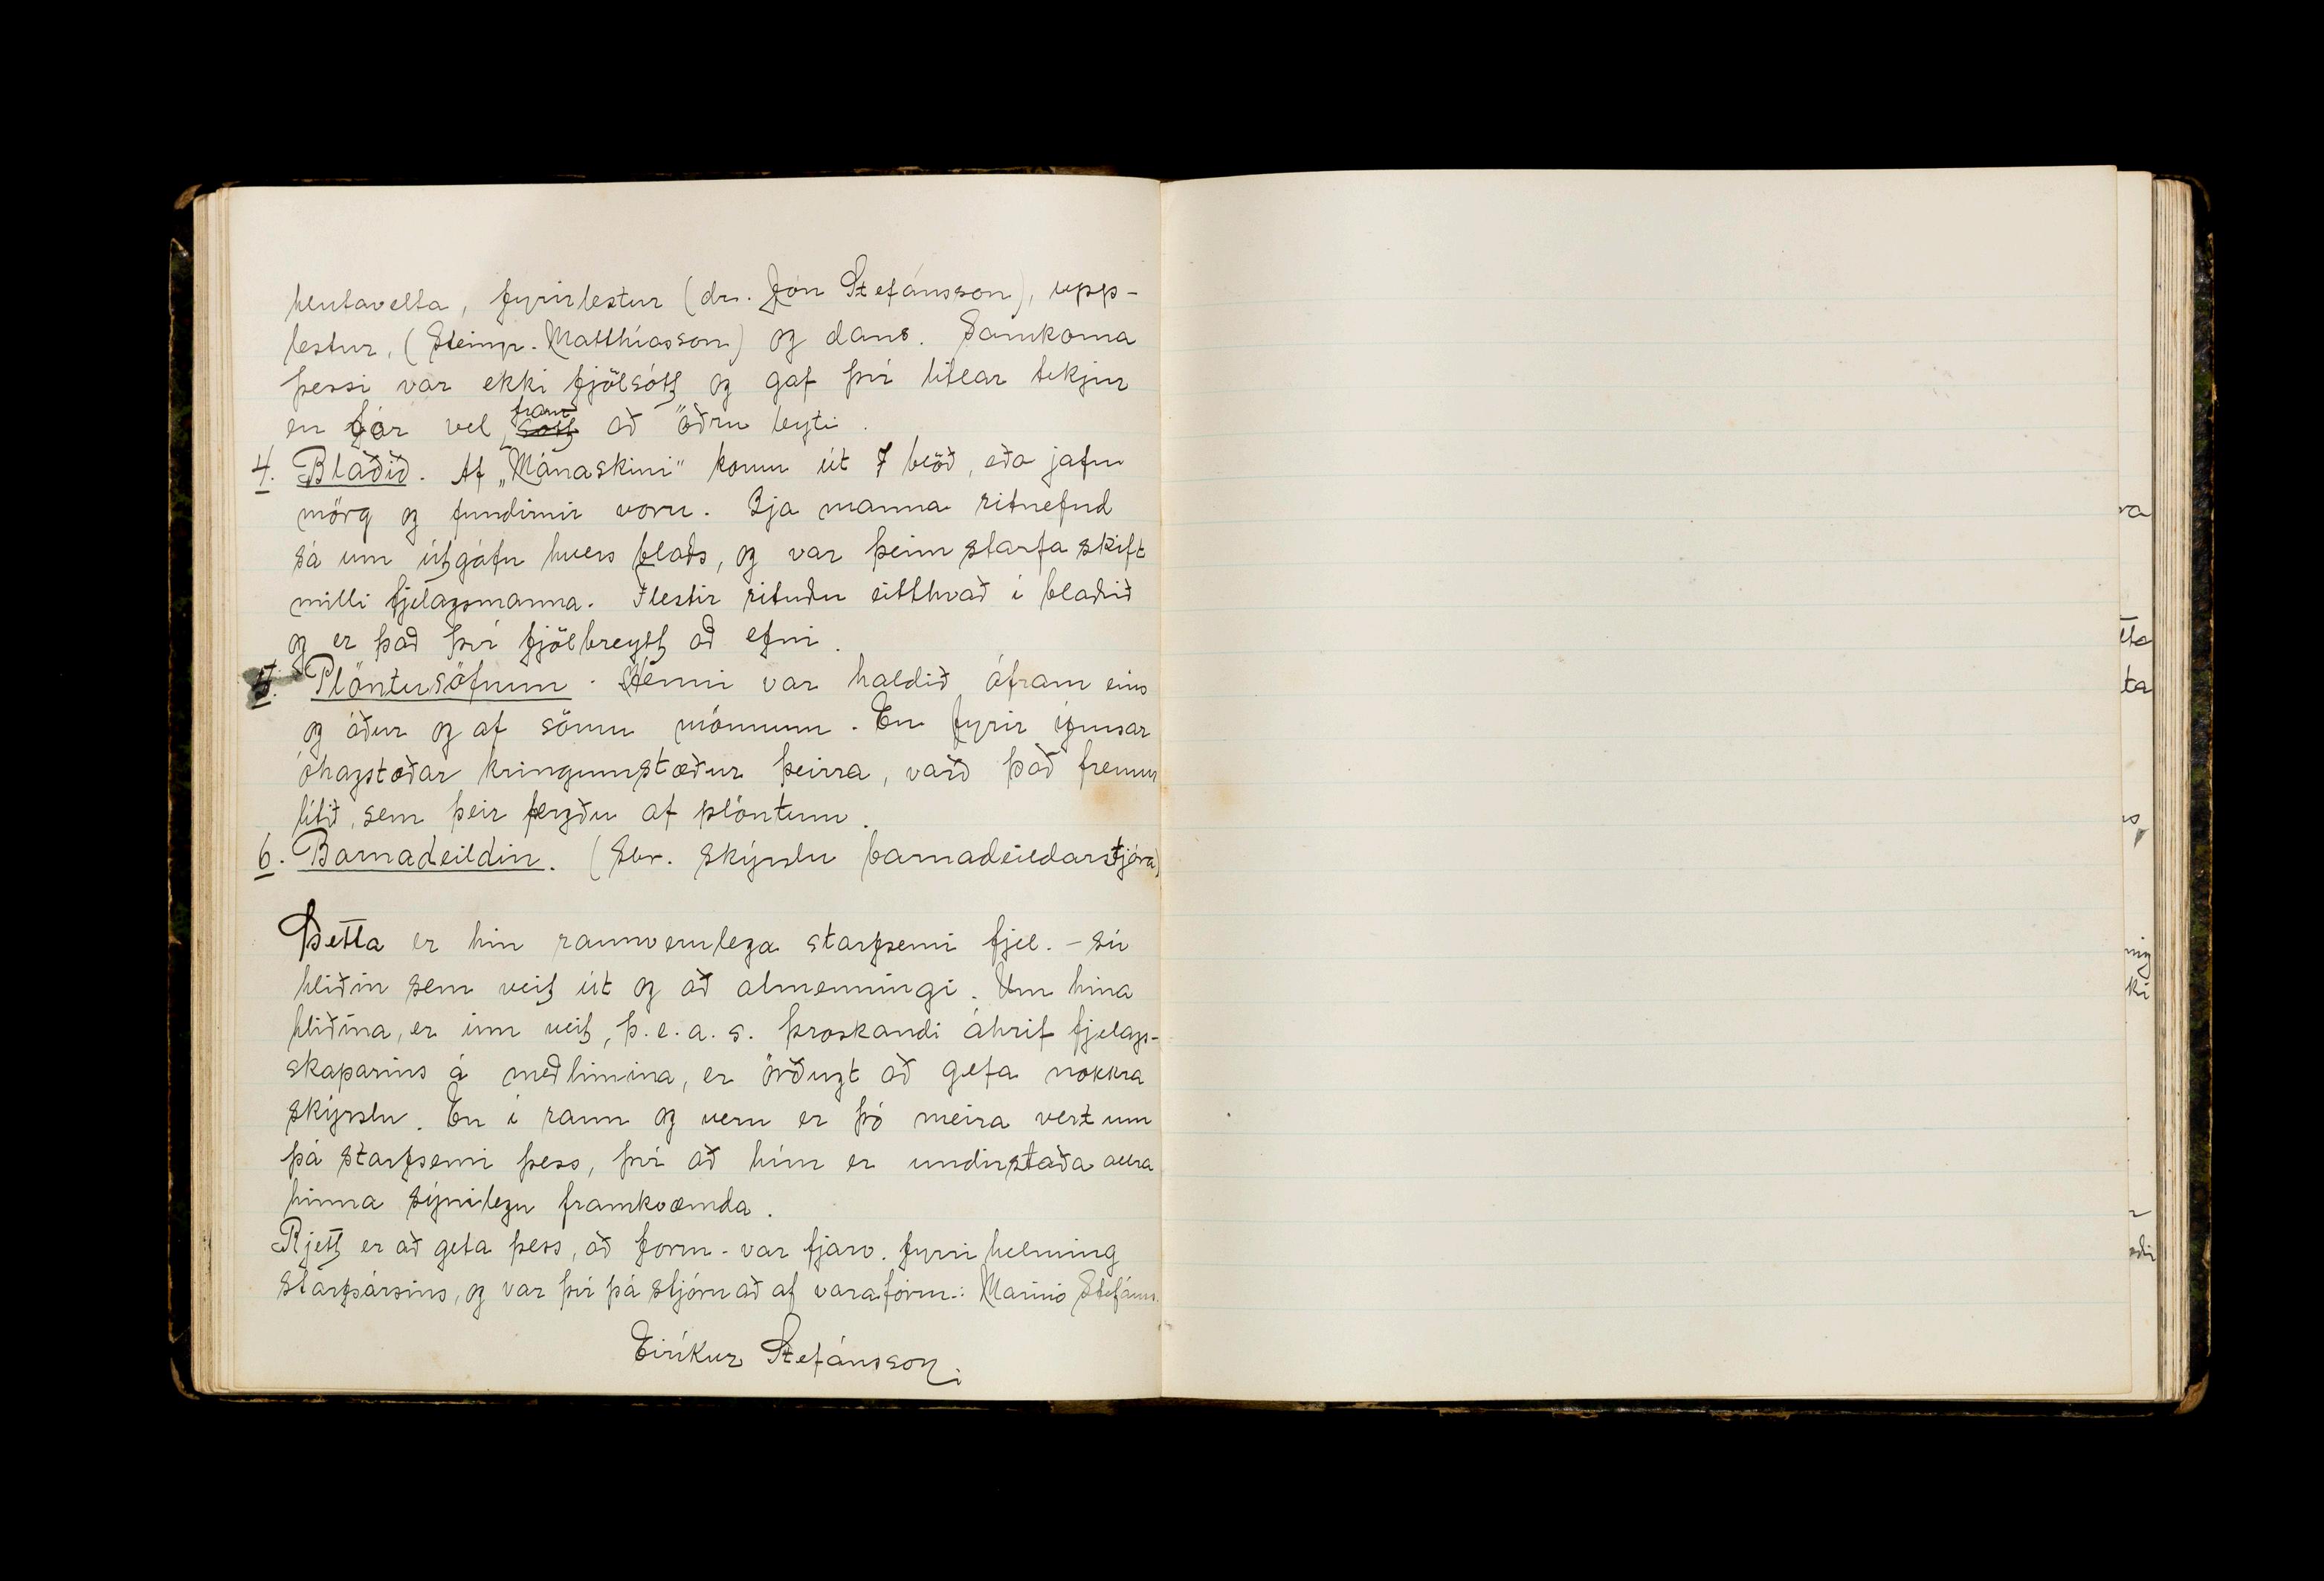 hlutavelta, fyrirlestur (dr. Jón Stefánsson), upp-
lestur, (Steingr. Matthíasson) og dans. Samkoma
þessi var ekki fjölsótt og gaf því litlar tekjur
en fór vel fram að öðru leyti.
4. Blaðið. Af „Mánaskini" komu út 7 blöð, eða jafn
mörg og fundirnir voru. 3ja manna ritnefnd
sá um útgáfu hvers blaðs, og var þeim starfa skift
milli fjelagsmanna. Flestir rituðu eitthvað í blaðið
og er það því fjölbreytt að efni.
5. Plöntusöfnun. Henni var haldið áfram eins
og áður og af sömu mönnum. En fyrir ýmsar
óhagstæðar kringumstæður þeirra, varð það fremur
lítið, sem þeir fergðu af plöntum.
6. Barnadeildin. (Sbr. skýrslu barnadeildarstjóra)
Þetta er hin raunverulega starfsemi fjel. - sú
hliðin sem veit út og að almenningi. Um hina
hliðina, er inn veit, þ.e.a.s. þroskandi áhrif fjelags-
skaparins á meðlimina, er örðugt að gefa nokkra
skýrslu. En í raun og veru er þó meira vert um
þá starfsemi þess, því að hún er undirstaða allra
hinna sýnilegu framkvæmda.
Rjett er að geta þess, að form. var fjarv. fyrri helming
starfsársins, og var því þá stjórnað af varaform.: Marinó Stefáns.
Eiríkur Stefánsson